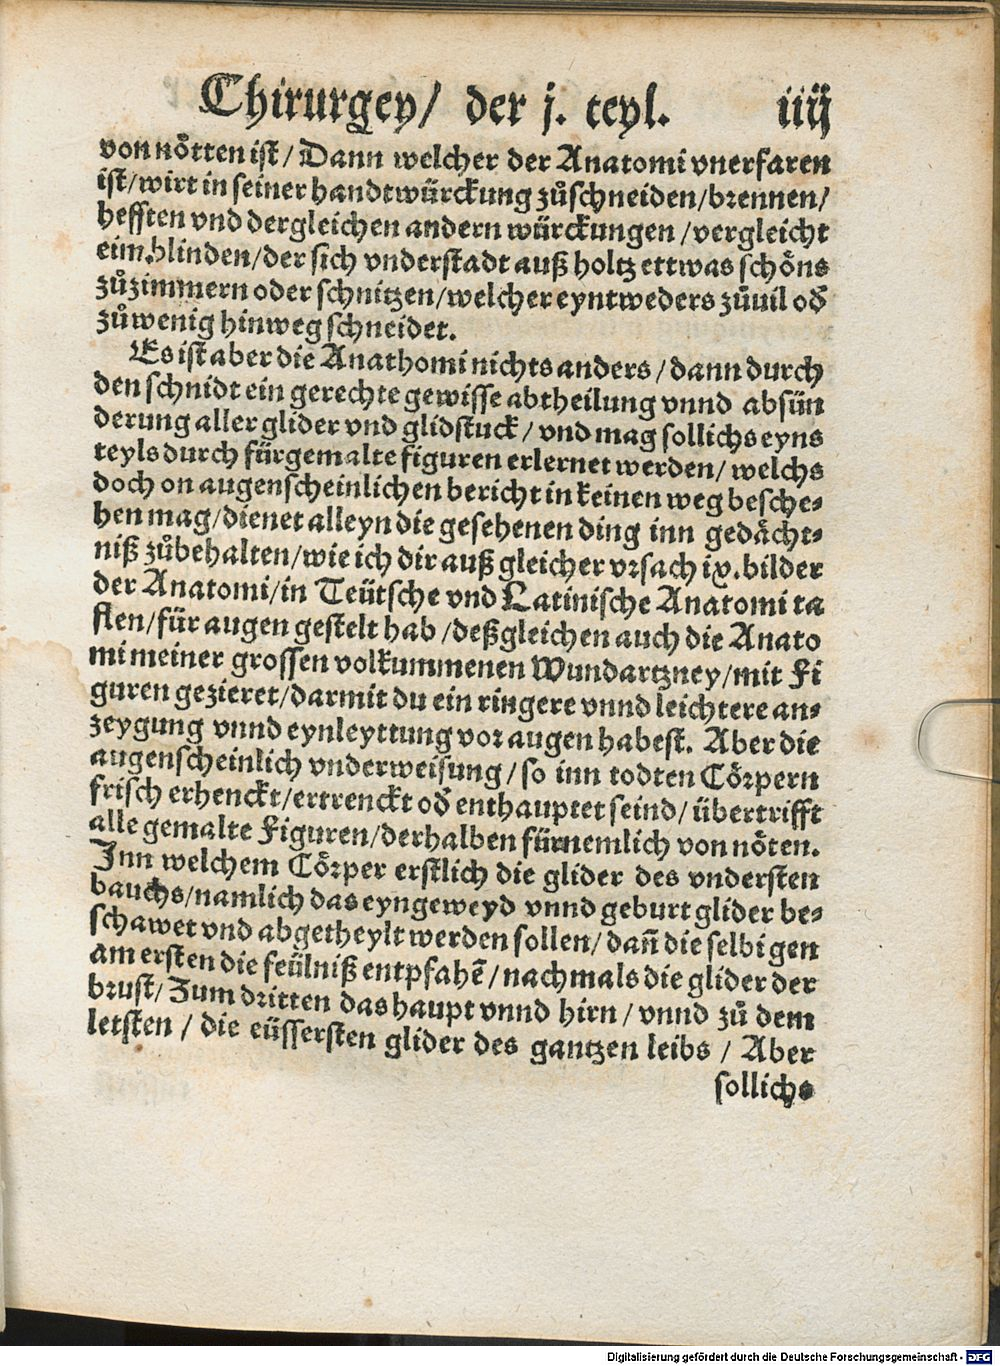 Chirurgey/ der j. teyl. iiij
von nötten ist/ Dann welcher der Anatomi vnerfaren
ist/wirt in seiner handtwürckung zůschneiden/brennen/
hefften vnd dergleichen andern würckungen /vergleicht
eim blinden/der sich vnderstadt auß holtz ettwas schöns
zůzimmern oder schnitzen/welcher eyntweders zůuil oď
zůwenig hinweg schneidet.
Es ist aber die Anathomi nichts anders/dann durch
den schnidt ein gerechte gewisse abtheilung vnnd absün
derung aller glider vnd glidstuck/ vnd mag sollichs eyns
teyls durch fürgemalte figuren erlernet werden/ welchs
doch on augenscheinlichen bericht in keinen weg besche-
hen mag/dienet alleyn die gesehenen ding inn gedächt-
niß zůbehalten/wie ich dir auß gleicher vrsach ix.bilder
der Anatomi/in Teütsche vnd Latinische Anatomi ta
flen/für augen gestelt hab/deßgleichen auch die Anato
mi meiner grossen volkummenen Wundartzney/mit Fi
guren gezieret/darmit du ein ringere vnnd leichtere an-
zeygung vnnd eynleyttung vor augen habest. Aber die
augenscheinlich vnderweisung/so inn todten Cörpern
frisch erhenckt/ertrenckt oď enthauptet seind/ übertrifft
alle gemalte Figuren/derhalben fürnemlich von nöten.
Inn welchem Cörper erstlich die glider des vndersten
bauchs/namlich das eyngeweyd vnnd geburt glider be-
schawet vnd abgetheylt werden sollen/ dañ die selbigen
am ersten die feülniß entpfahẽ/nachmals die glider der
brust/Zum dritten das haupt vnnd hirn/vnnd zů dem
letsten / die eüssersten glider des gantzen leibs / Aber
sollichs
Digitalisierung gefördert durch die Deutsche Forschungsgemeinschaft - DFG